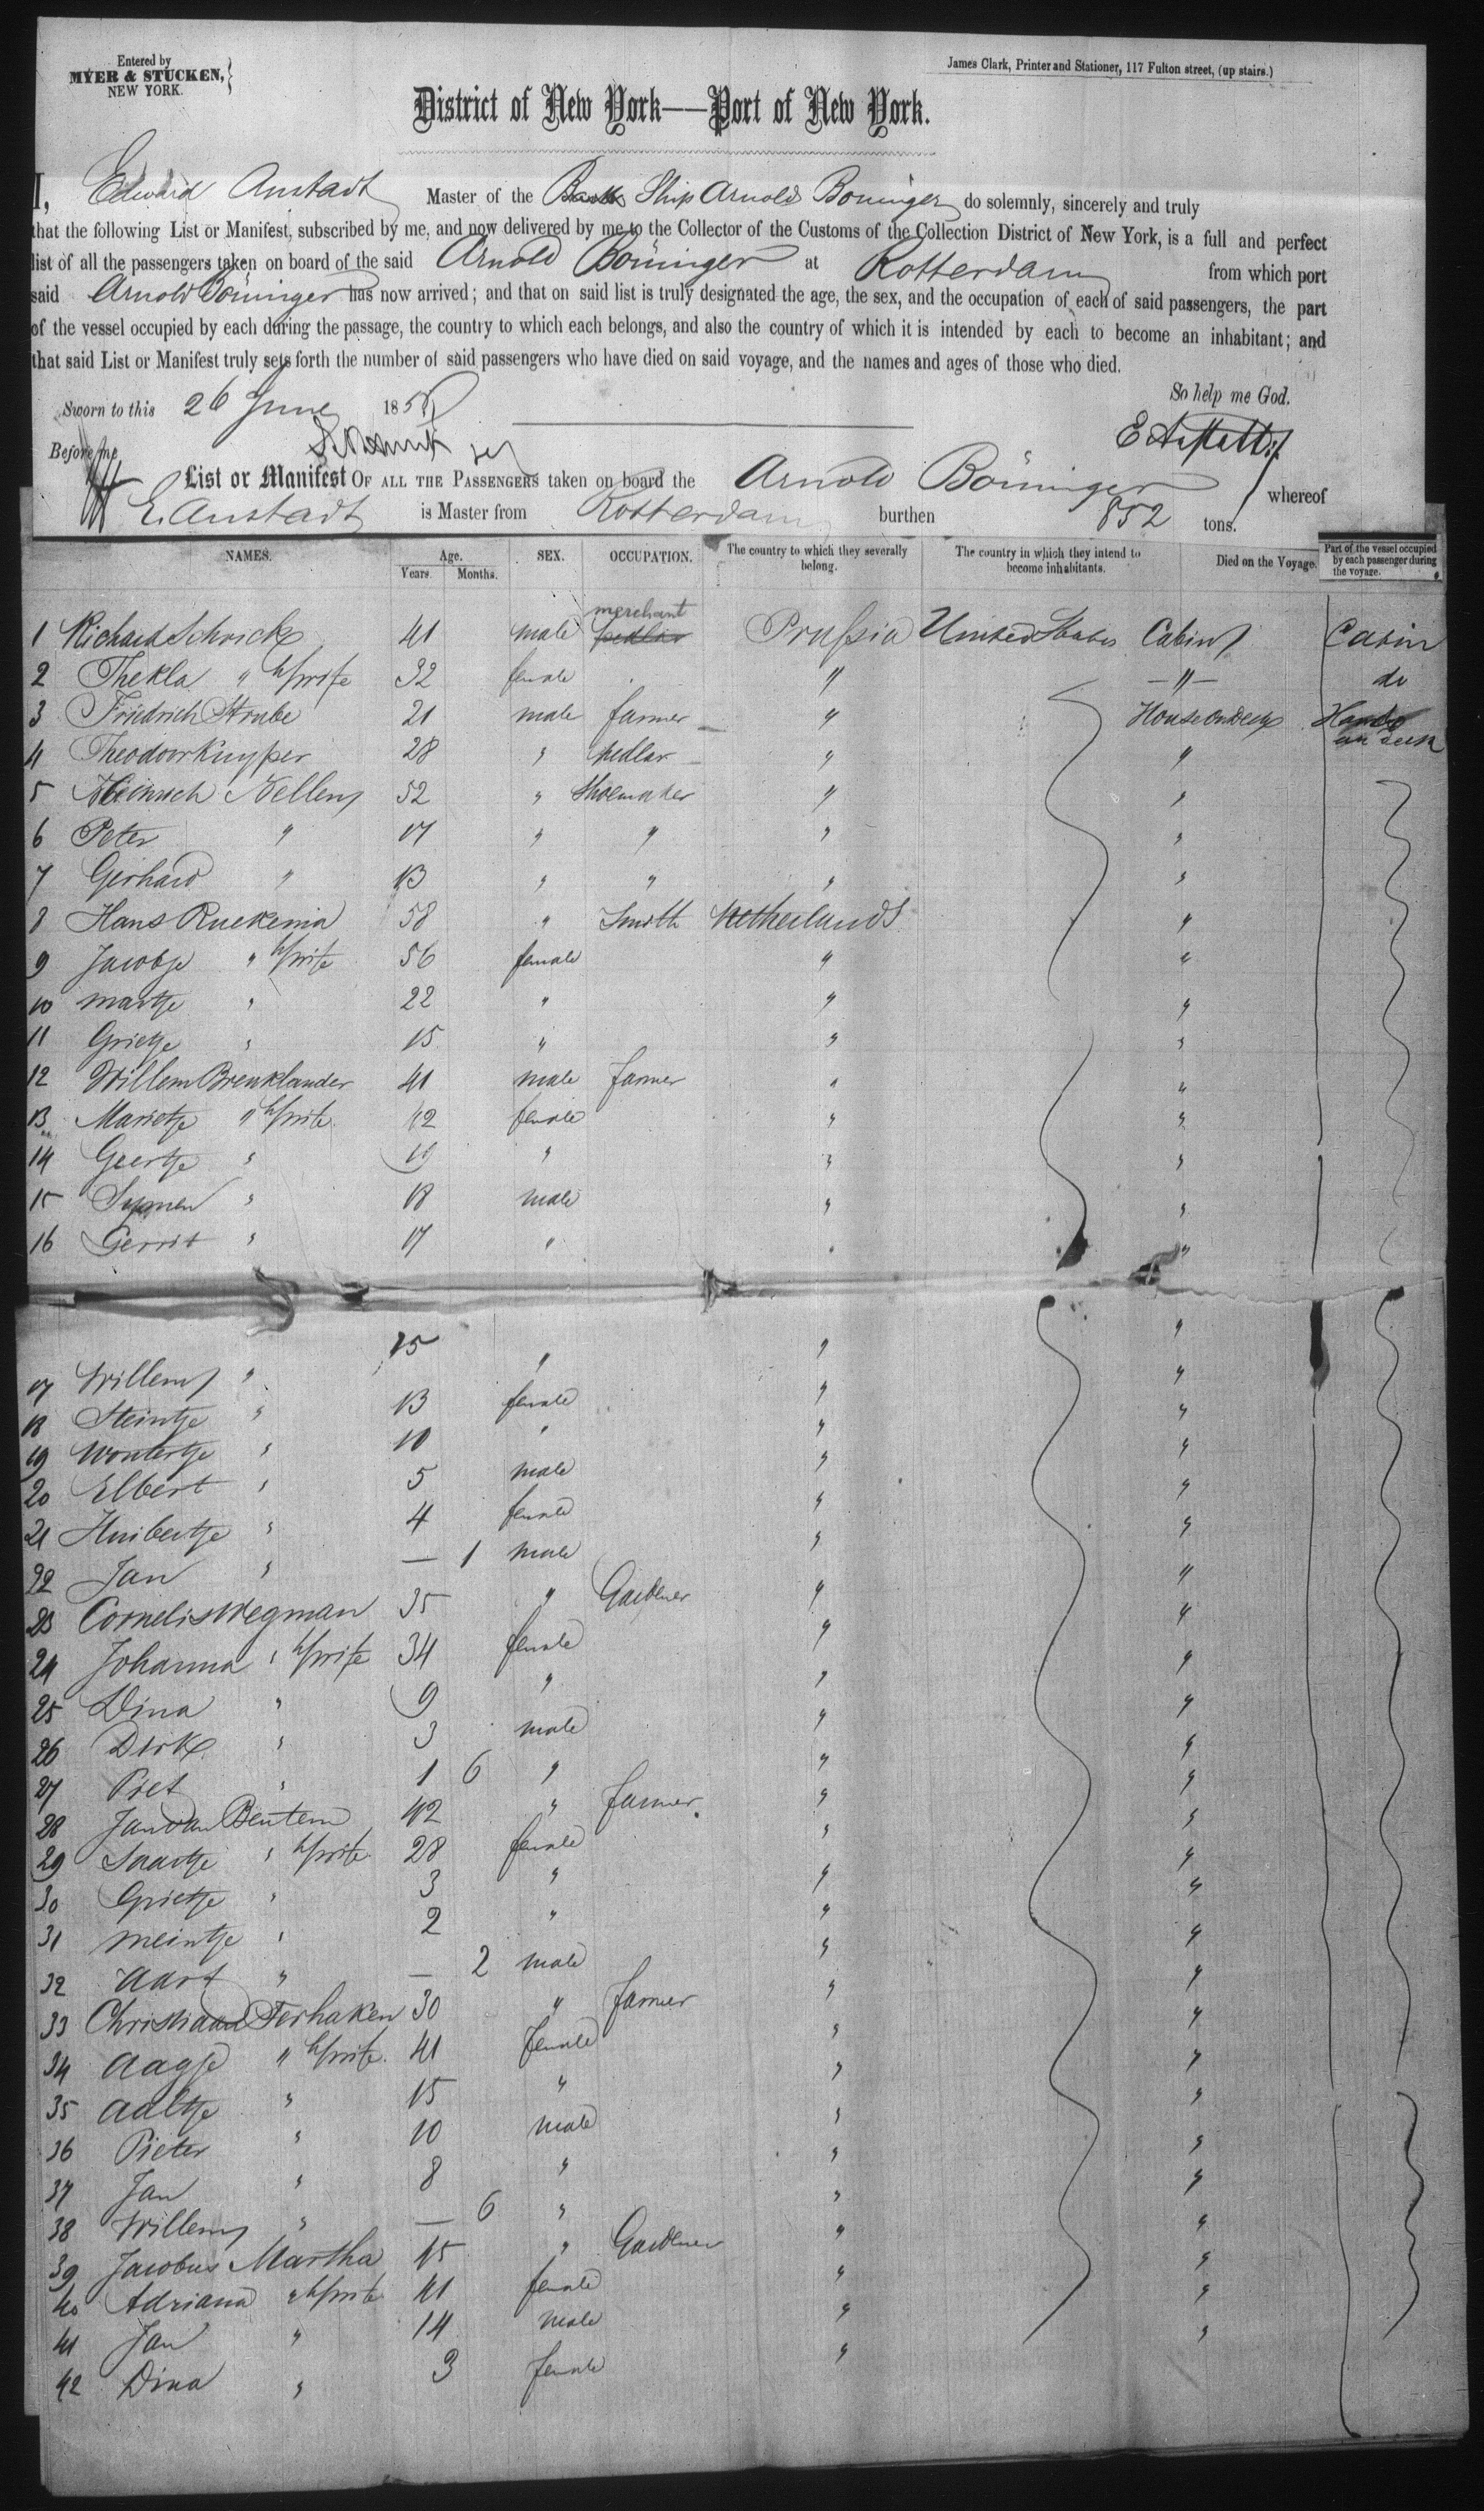 Entered by
MYER & STUCKEN,
NEW YORK.
James Clark, Printer and Stationer, 117 Fulton street, (up stairs.)
District of New York—Port of New York.
I, Edward Anstadt Master of the Ship Arnold Böninger do solemnly, sincerely and truly
that the following List or Manifest, subscribed by me, and now delivered by me to the Collector of the Customs of the Collection District of New York, is a full and perfect
list of all the passengers taken on board of the said Arnold Böninger at Rotterdam from which port
said Arnold Böninger has now arrived; and that on said list is truly designated the age, the sex, and the occupation of each of said passengers, the part
of the vessel occupied by each during the passage, the country to which each belongs, and also the country of which it is intended by each to become an inhabitant; and
that said List or Manifest truly sets forth the number of said passengers who have died on said voyage, and the names and ages of those who died.
So help me God.
Sworn to this 26 June 185
Before me
List or Manifest OF ALL THE PASSENGERS taken on board the Arnold Böninger whereof
E. Anstadt is Master from Rotterdam burthen 852 tons.
NAMES. Age. Years. Months. SEX. OCCUPATION. The country to which they severally belong. The country in which they intend to become inhabitants. Died on the Voyage. Part of the vessel occupied by each passenger during the voyage.
merchant
1 Richard Schrick 41 male pedlar Prussia United States Cabin Cabin
2 Thekla " h/wife 32 female " —"— do
3 Friedrich Strube 21 male farmer " House on Deck House on deck
4 Theodoor Kuyper 28 " pedlar " "
5 Heinrich Nellen 52 " Shoemaker " "
6 Peter " 17 " " " "
7 Gerhard " 13 " " " "
8 Hans Ruekema 58 " Smith Netherlands "
9 Jacobje " h/wife 56 female " "
10 Martje " 22 " " "
11 Grietje " 15 " " "
12 Willem Breuklander 41 male farmer " "
13 Marietje " h/wife 42 female " "
14 Geertje " 19 " " "
15 Symen " 18 male " "
16 Gerrit " 17 " " "
17 Willem " 15 " " "
18 Steintje " 13 female " "
19 Woutertje " 10 " " "
20 Elbert " 5 male " "
21 Huibertje " 4 female " "
22 Jan " — 1 male " "
23 Cornelis Wegman 35 " Gardener " "
24 Johanna " h/wife 34 female " "
25 Dina " 9 " " "
26 Dirk " 3 male " "
27 Piet " 1 6 " " "
28 Jan van Bentem 42 " farmer " "
29 Saartje " h/wife 28 female " "
30 Grietje " 3 " " "
31 Meintje " 2 " " "
32 Aart " — 2 male " "
33 Christiaan Terhaken 30 " farmer " "
34 Aagje " h/wife 41 female " "
35 Aaltje " 15 " " "
36 Pieter " 10 male " "
37 Jan " 8 " " "
38 Willem " — 6 " " "
39 Jacobus Martha 45 " Gardener " "
40 Adriana " h/wife 41 female " "
41 Jan " 14 male " "
42 Dina " 3 female "